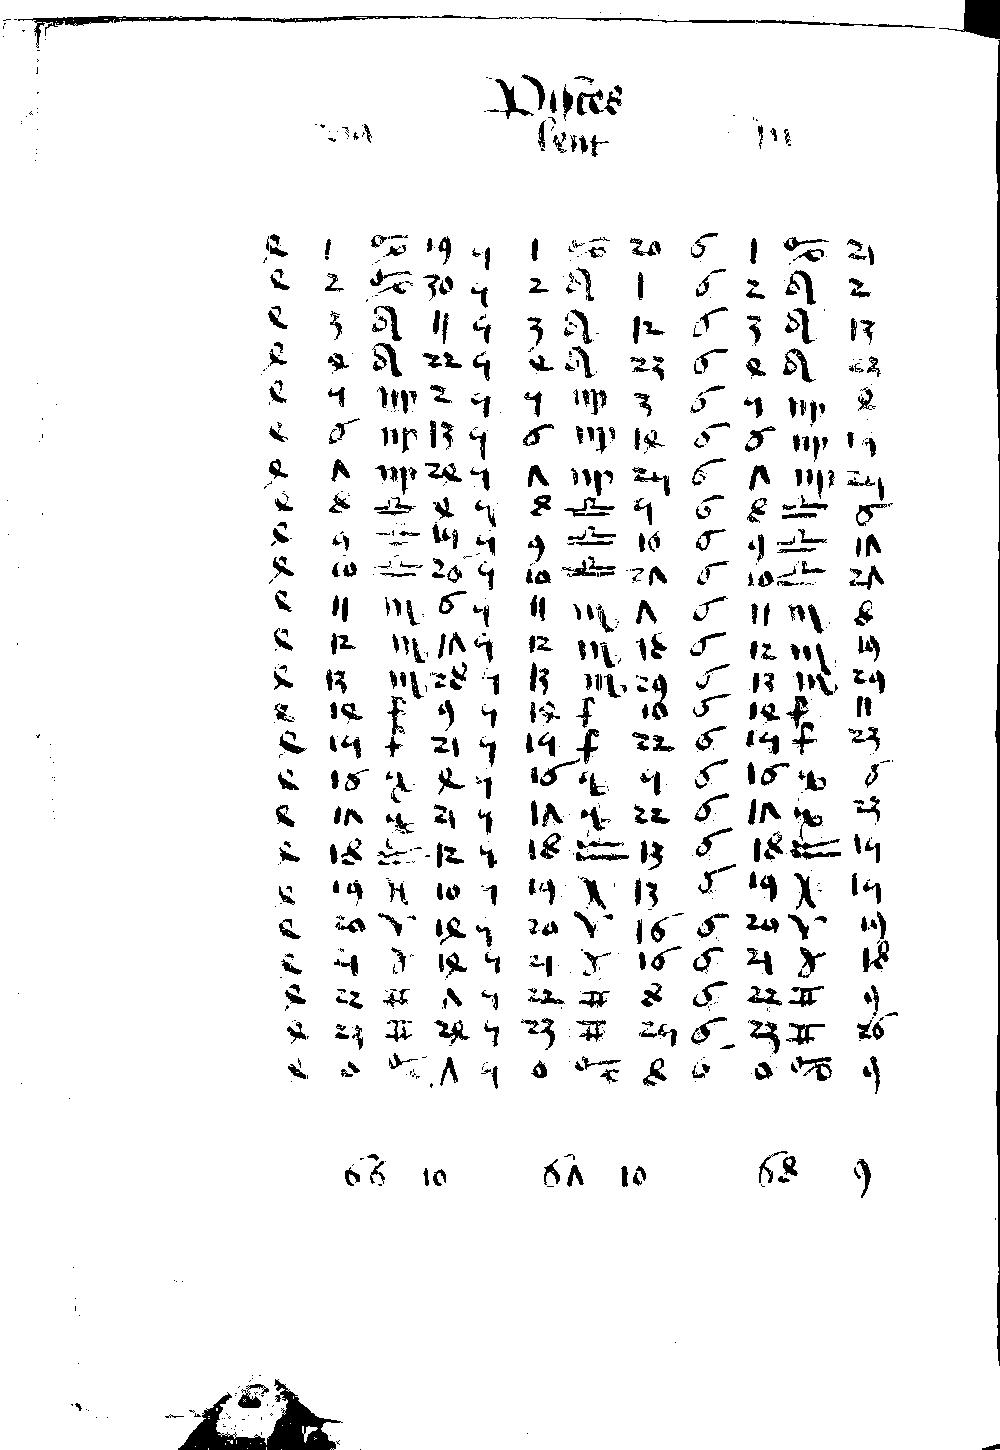 Pisces
sent
4 1 ♋ 19 5 1 ♋ 20 6 1 ♋ 21
4 2 ♋ 30 5 2 ♌ 1 6 2 ♌ 2
4 3 ♌ 11 5 3 ♌ 12 6 3 ♌ 13
4 4 ♌ 22 5 4 ♌ 23 6 4 ♌
4 5 ♍ 2 5 5 ♍ 3 6 5 ♍ 4
4 6 ♍ 13 5 6 ♍ 14 6 6 ♍ 15
4 7 ♍ 24 5 7 ♍ 25 6 7 ♍ 25
4 8 ♎ 4 5 8 ♎ 5 6 8 ♎ 6
4 9 ♎ 15 5 9 ♎ 16 6 9 ♎ 17
4 10 ♎ 26 5 10 ♎ 27 6 10 ♎ 27
4 11 ♏ 6 5 11 ♏ 7 6 11 ♏ 8
4 12 ♏ 17 5 12 ♏ 18 6 12 ♏ 19
4 13 ♏ 28 5 13 ♏ 29 6 13 ♏ 29
4 14 ♐ 9 5 14 ♐ 10 6 14 ♐ 11
4 15 ♐ 21 5 15 ♐ 22 6 15 ♐ 23
4 16 ♑ 4 5 16 ♑ 5 6 16 ♑ 6
4 17 ♑ 21 5 17 ♑ 22 6 17 ♑ 23
4 18 ♒ 12 5 18 ♒ 13 6 18 ♒ 15
4 19 ♓ 10 5 19 ♓ 13 6 19 ♓ 15
4 20 ♈ 14 5 20 ♈ 16 6 20 ♈ 19
4 21 ♉ 14 5 21 ♉ 16 6 21 ♉ 18
4 22 ♊ 7 5 22 ♊ 8 6 22 ♊ 9
4 23 ♊ 24 5 23 ♊ 25 6 23 ♊ 26
4 0 ♋ 7 5 0 ♋ 8 6 0 ♋ 9
66 10 67 10 68 9